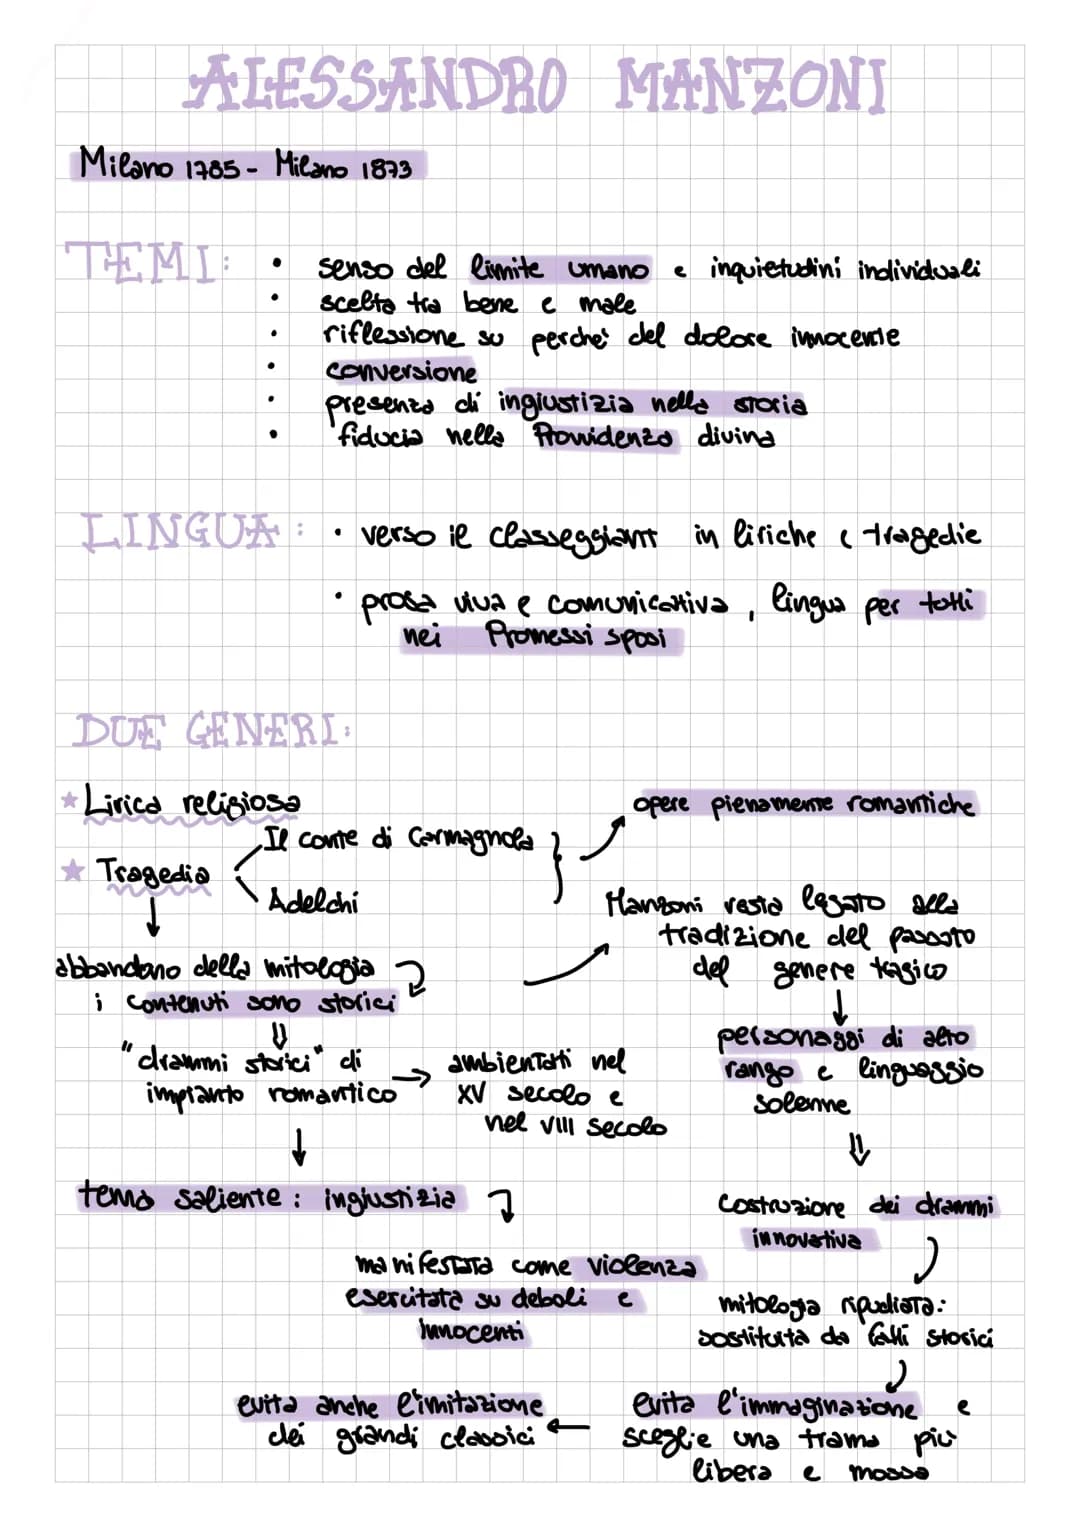 ALESSANDRO MANZONI
Milano 1785 - Milano 1873
TEMI:
• senso del limite umano e inquietudini individuali
• scelta tra bene e male
• riflessione su perche' del dolore innocente
• conversione
• presenza di ingiustizia nella storia
• fiducia nella Provvidenza divina
LINGUA:
• verso il classeggiant in liriche e tragedie
• prosa viva e comunicativa, lingua per tutti
nei Promessi sposi
DUE GENERI:
★ Lirica religiosa
★ Tragedia
Il conte di Carmagnola
Adelchi
opere pienamente romantiche
abbandono della mitologia
i contenuti sono storici
"drammi storici" di
impianto romantico
ambientati nel
XV secolo e
nel VIII secolo
Manzoni resta legato alla
tradizione del passato
del genere tragico
personaggi di alto
rango e linguaggio
solenne
tema saliente: ingiustizia
manifestata come violenza
esercitata su deboli e
innocenti
costruzione dei drammi
innovativa
mitologia ripudiata:
sostituita da fatti storici
evita l'immaginazione e
sceglie una trama più
libera e mossa
evita anche l'imitazione
dei grandi classici